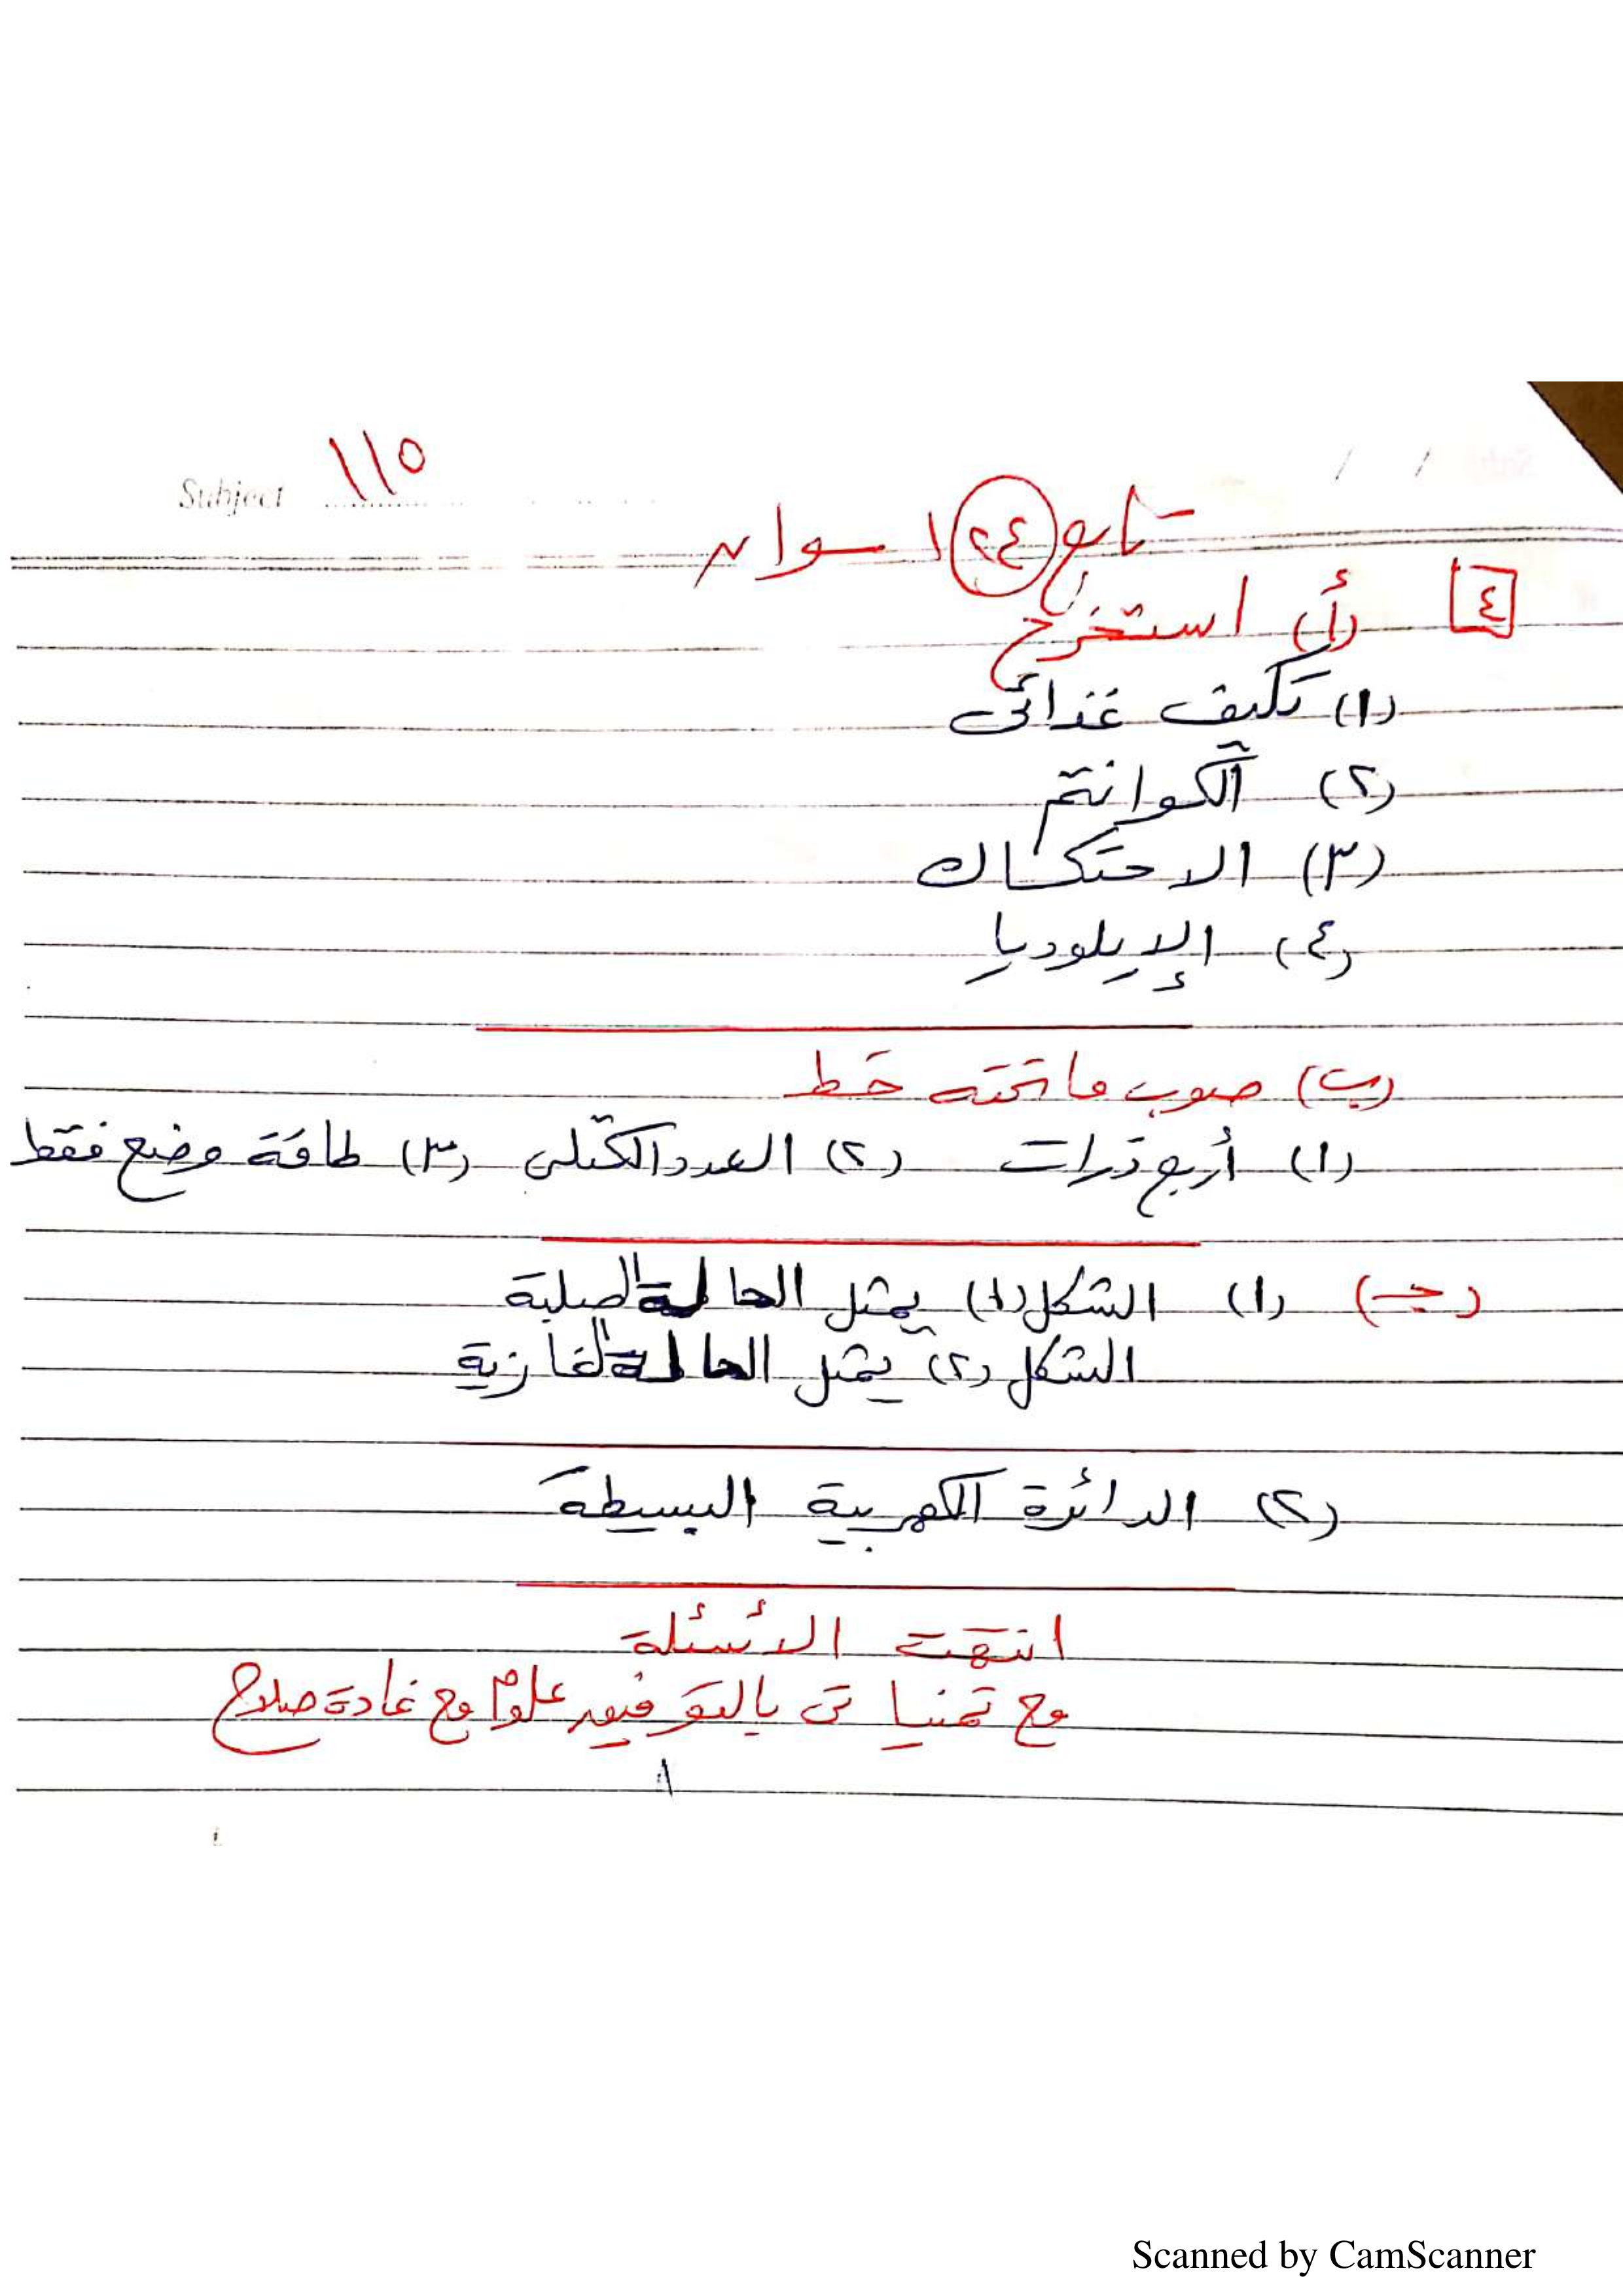 Subject ١١٥
تابع ٢٤ اسوان
٤ (أ) استخرج
(١) تكيف غذائى
(٢) الكوانتم
(٣) الاحتكاك
(٤) الإيلوديا
(ب) صوب ما تحته خط
(١) أربع ذرات (٢) العدد الكتلى (٣) طاقة وضع فقط
(جـ) (١) الشكل (١) يمثل الحالة الصلبة
الشكل (٢) يمثل الحالة الغازية
(٢) الدائرة الكهربية البسيطة
انتهت الأسئلة
مع تمنياتى بالتوفيق علوم مع غادة صلاح
Scanned by CamScanner